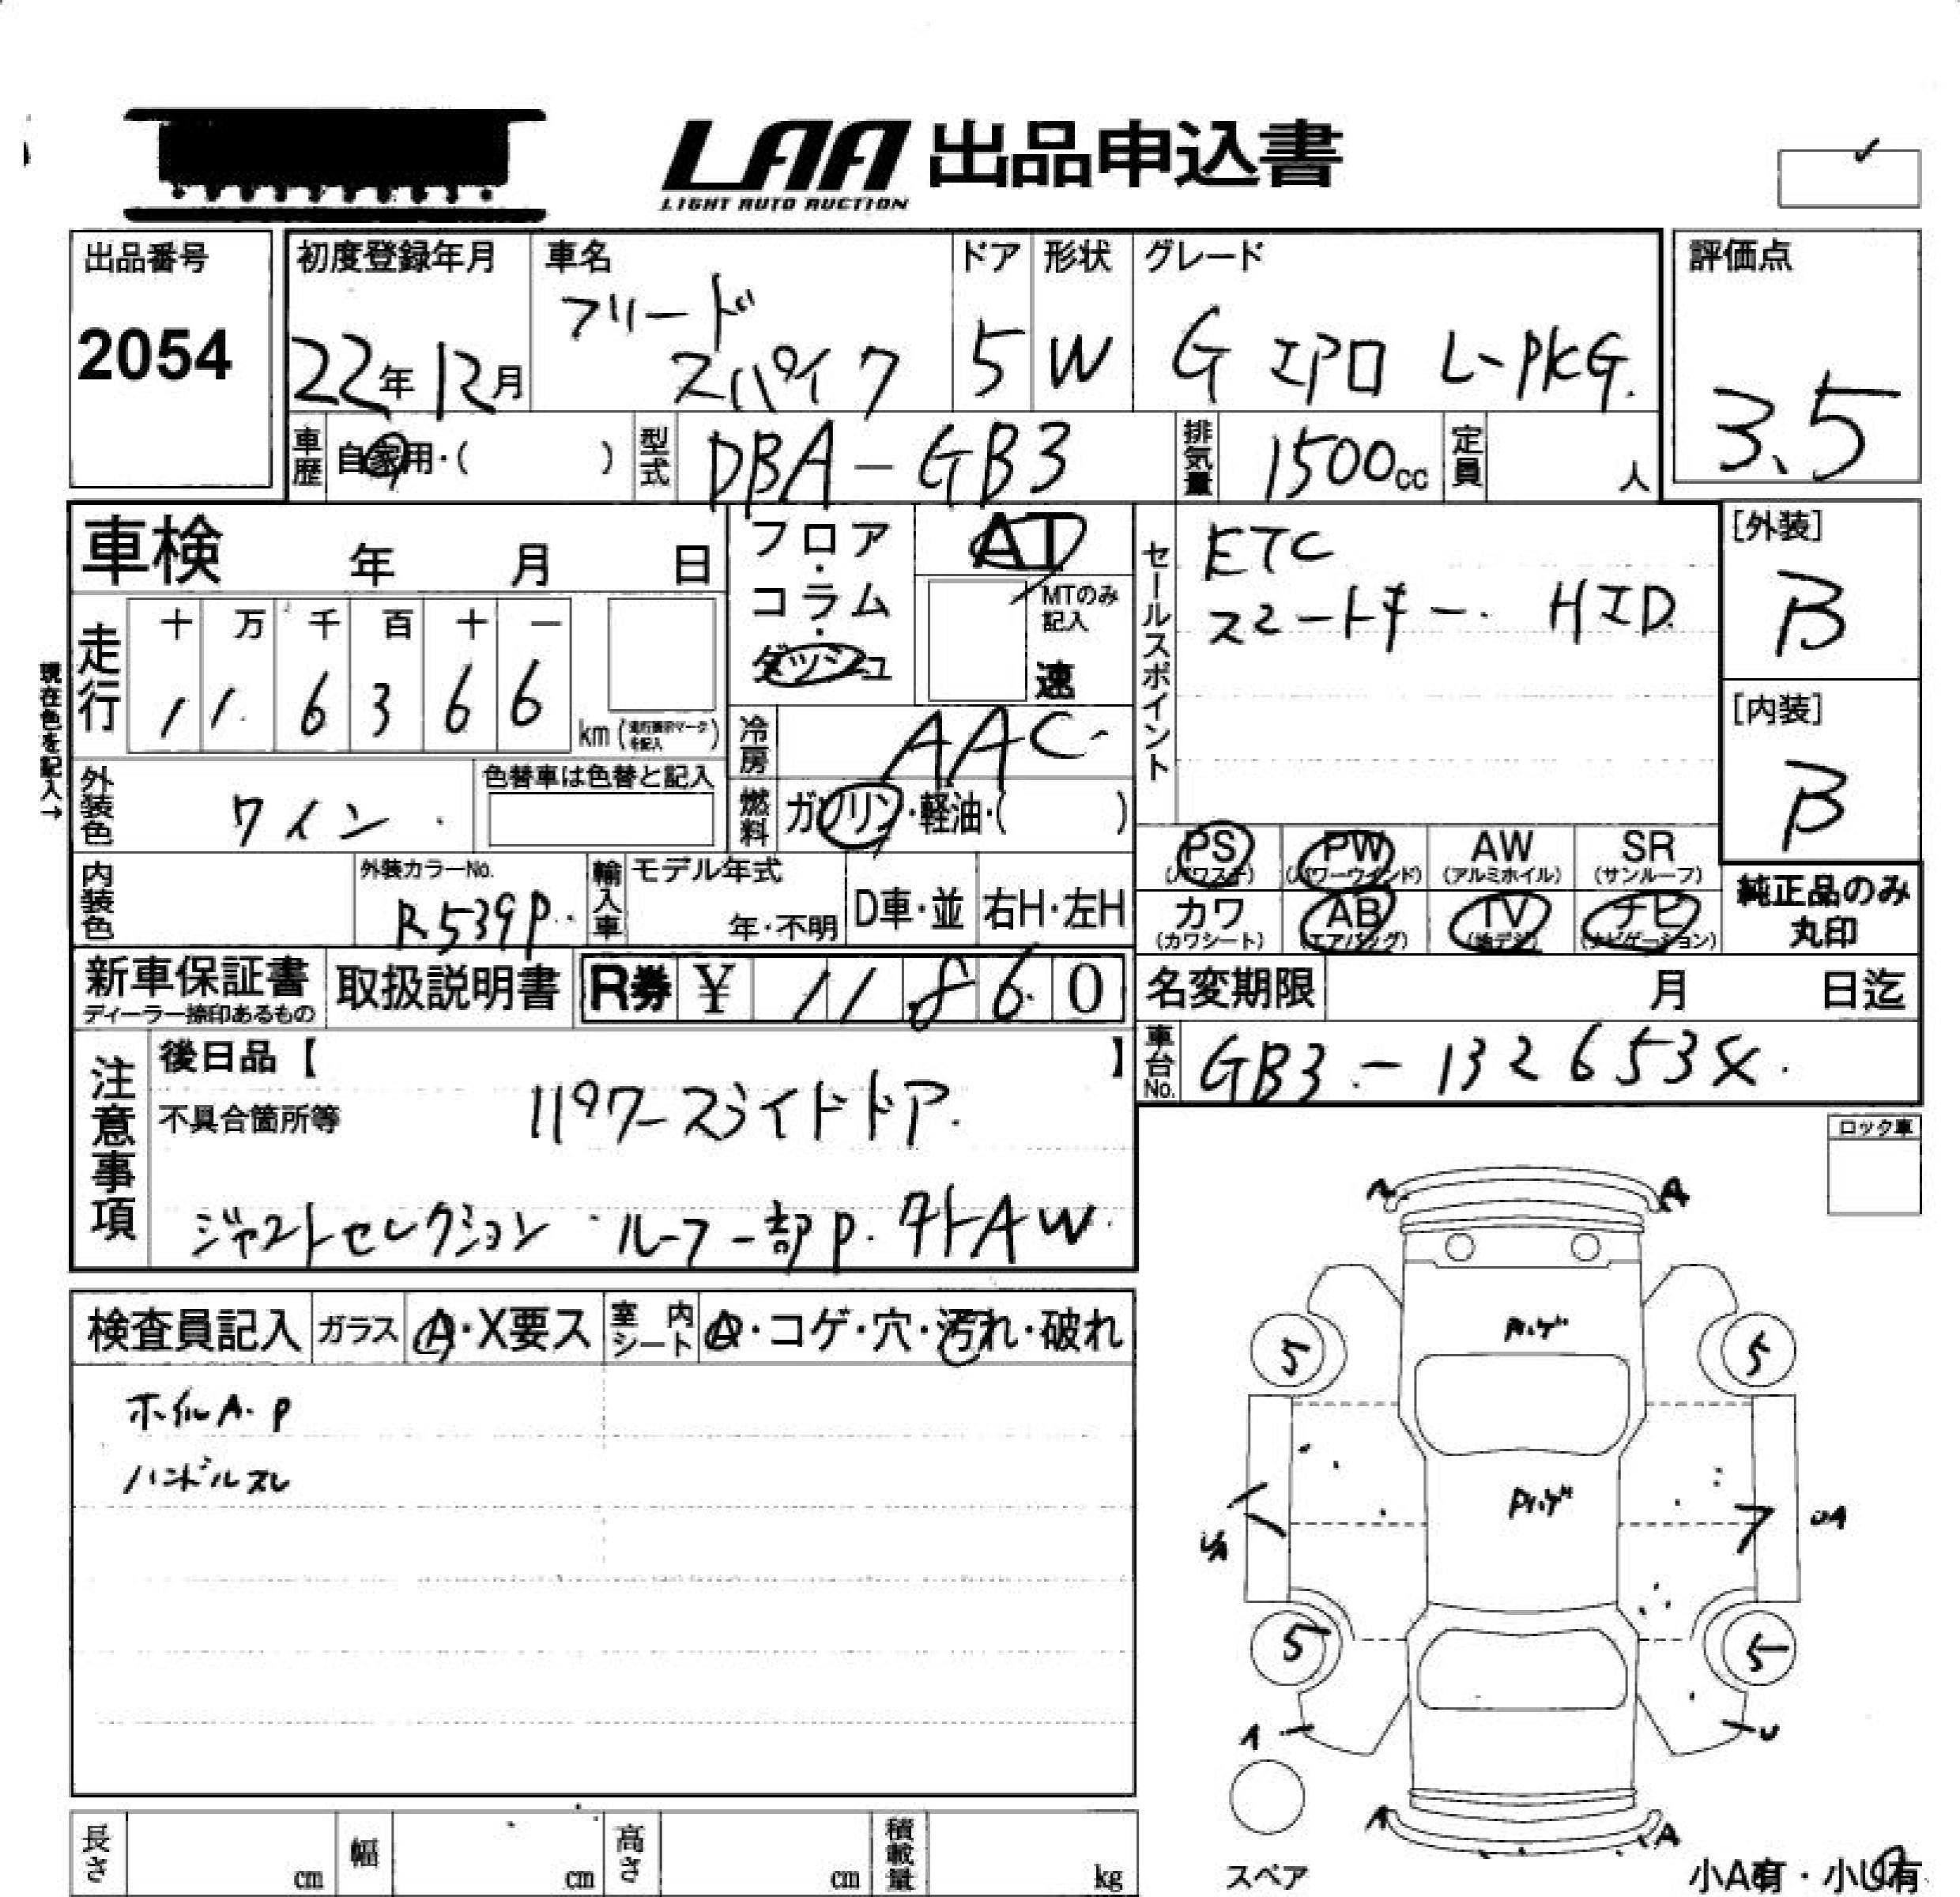 LAA 出品申込書
LIGHT AUTO AUCTION
出品番号
2054
初度登録年月
22年12月
車名
フリード
スパイク
ドア
5
形状
W
グレード
G エアロ L-PKG.
評価点
3.5
車歴
自家用・( )
型式
DBA-GB3
排気量
1500cc
定員
人
車検 年 月 日
走行
十 万 千 百 十 一
1 1 6 3 6 6
km(走行表示マークを記入)
現在色を記入→
フロア・コラム・ダッシュ
AT
MTのみ記入
速
冷房
AAC
燃料
ガソリン・軽油・( )
セールスポイント
ETC
スマートキー. HID
[外装]
B
[内装]
B
外装色
ワイン
色替車は色替と記入
内装色
外装カラーNo.
R539P
輸入車
モデル年式
年・不明
D車・並
右H・左H
PS
(パワステ)
PW
(パワーウインド)
AW
(アルミホイル)
SR
(サンルーフ)
カワ
(カワシート)
AB
(エアバッグ)
TV
(地デジ)
ナビ
(ナビゲーション)
純正品のみ
丸印
新車保証書
ディーラー捺印あるもの
取扱説明書
R券 ¥ 11860
名変期限 月 日迄
車台No.
GB3-132653X.
注意事項
後日品【 】
不具合箇所等
パワースライドドア.
ジャストセレクション ルーフ一部P. 外AW.
ロック車
検査員記入
ガラス
A・X要ス
室内シート
A・コゲ・穴・汚れ・破れ
ホイルA.P
ハンドルスレ
A
A
5
5
UA
5
5
A
U
A
A
スペア
小A有・小U有
長さ
cm
幅
cm
高さ
cm
積載量
kg